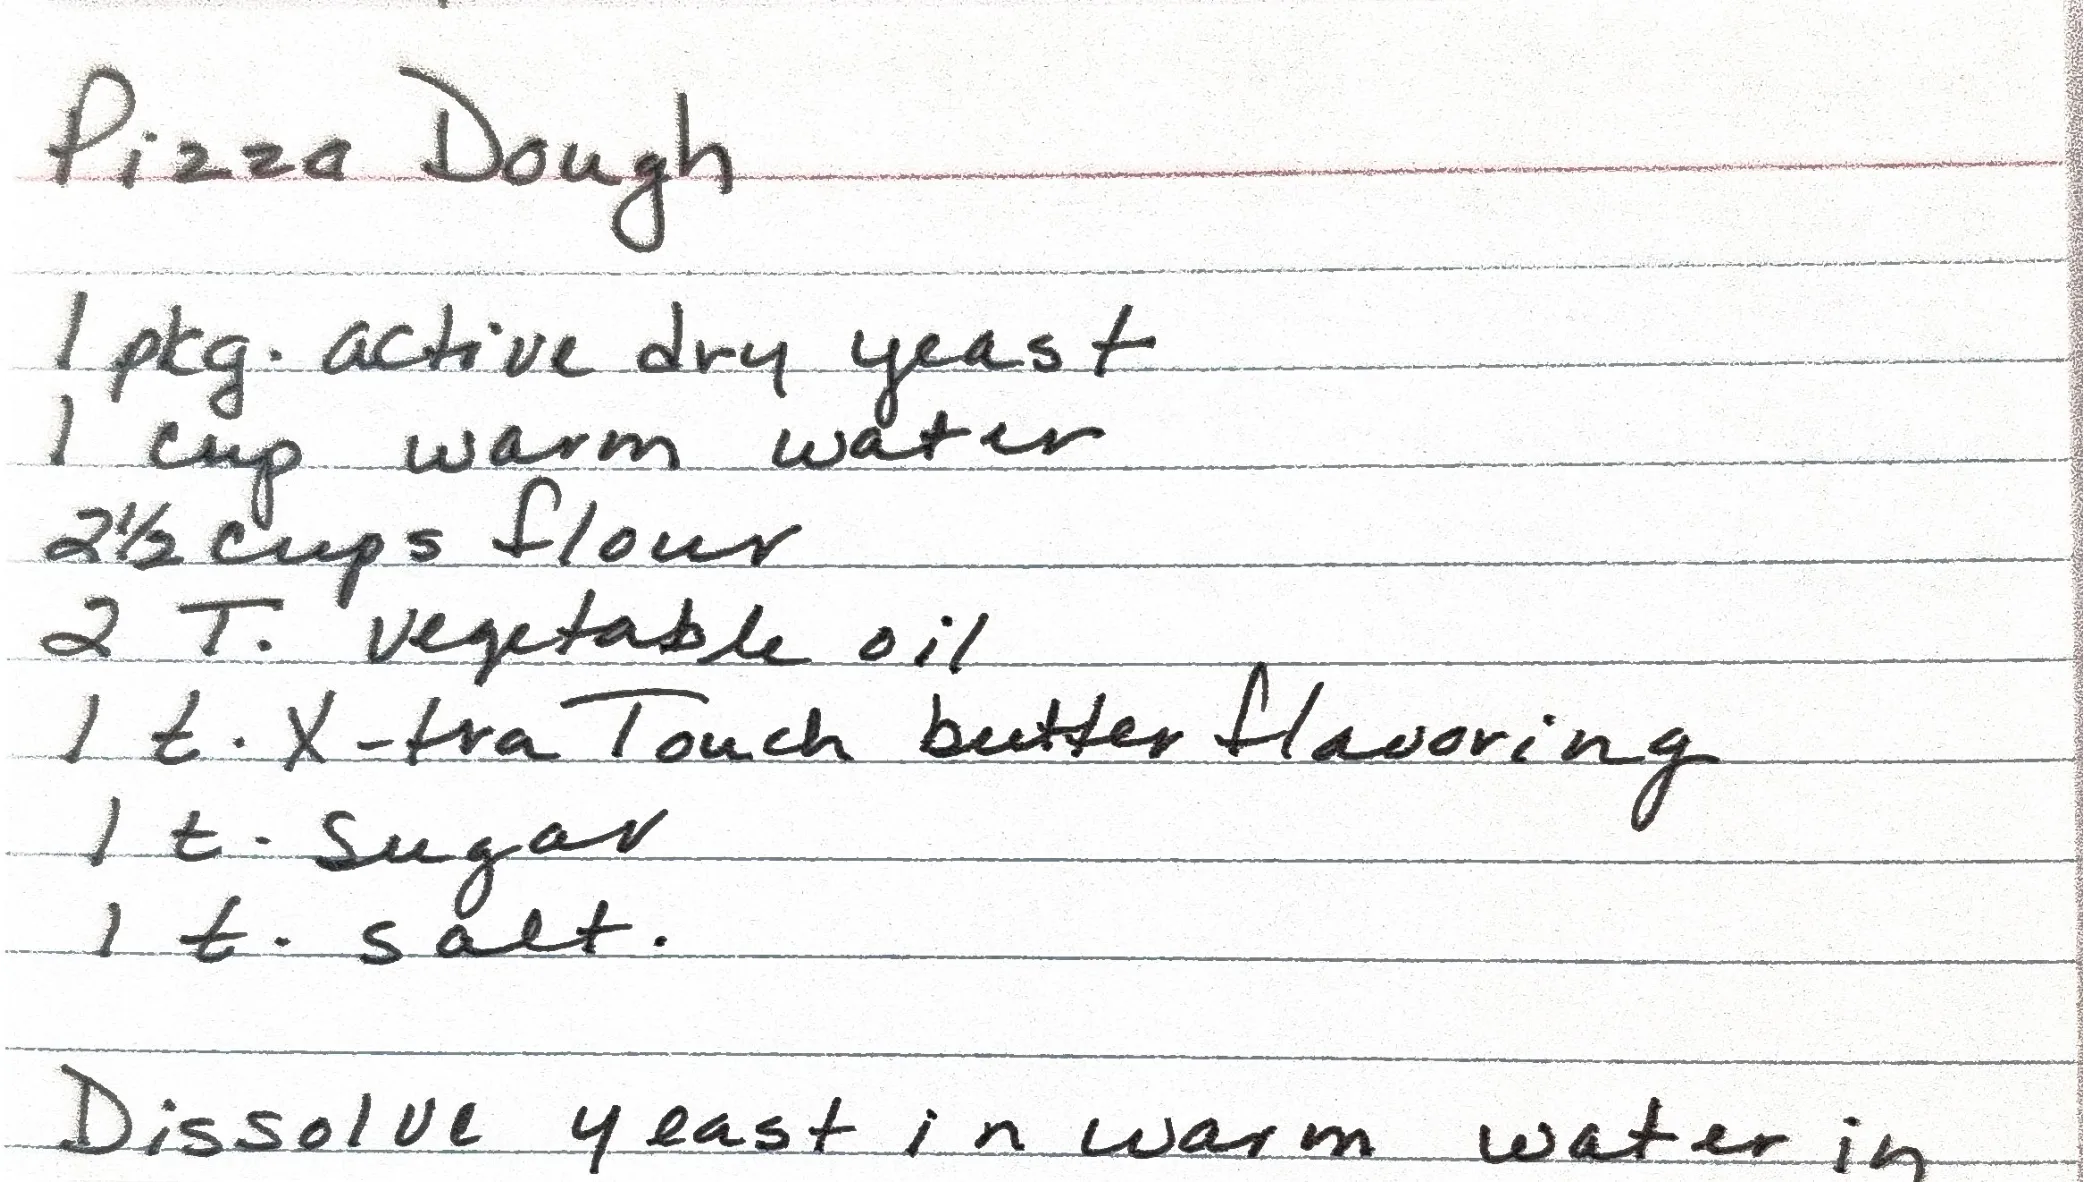 Pizza Dough
1 pkg. active dry yeast
1 cup warm water
2½ cups flour
2 T. vegetable oil
1 t. X-tra Touch butter flavoring
1 t. sugar
1 t. salt.
Dissolve yeast in warm water in